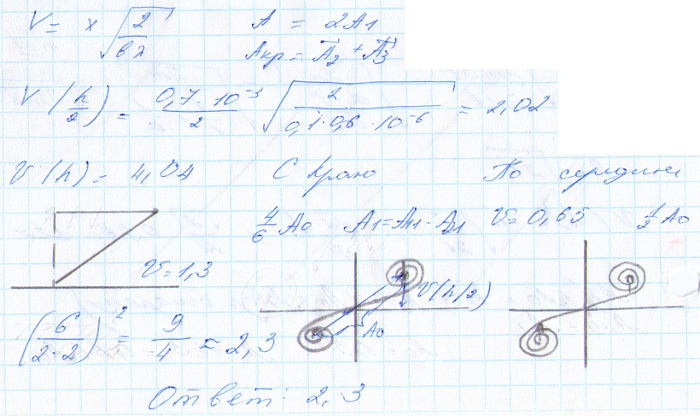 V = x √(2/(bλ)) A = 2A1
Aкр = A2 + A3
V(h/2) = (0,7·10^-3)/2 √(2/(0,1·0,6·10^-6)) = 2,02
V(h) = 4,04 С краю По середине
4/6 A0 A1 = A11 - A21 V = 0,65 1/2 A0
V = 1,3
V(h/2)
A0
(6/(2·2))^2 = 9/4 = 2,3
Ответ: 2,3